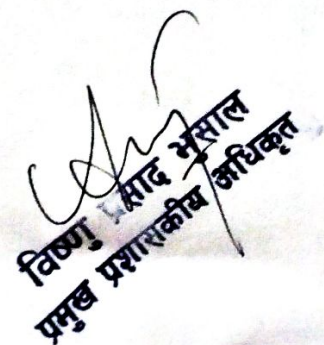 विष्णु प्रसाद भुसाल
प्रमुख प्रशासकीय अधिकृत